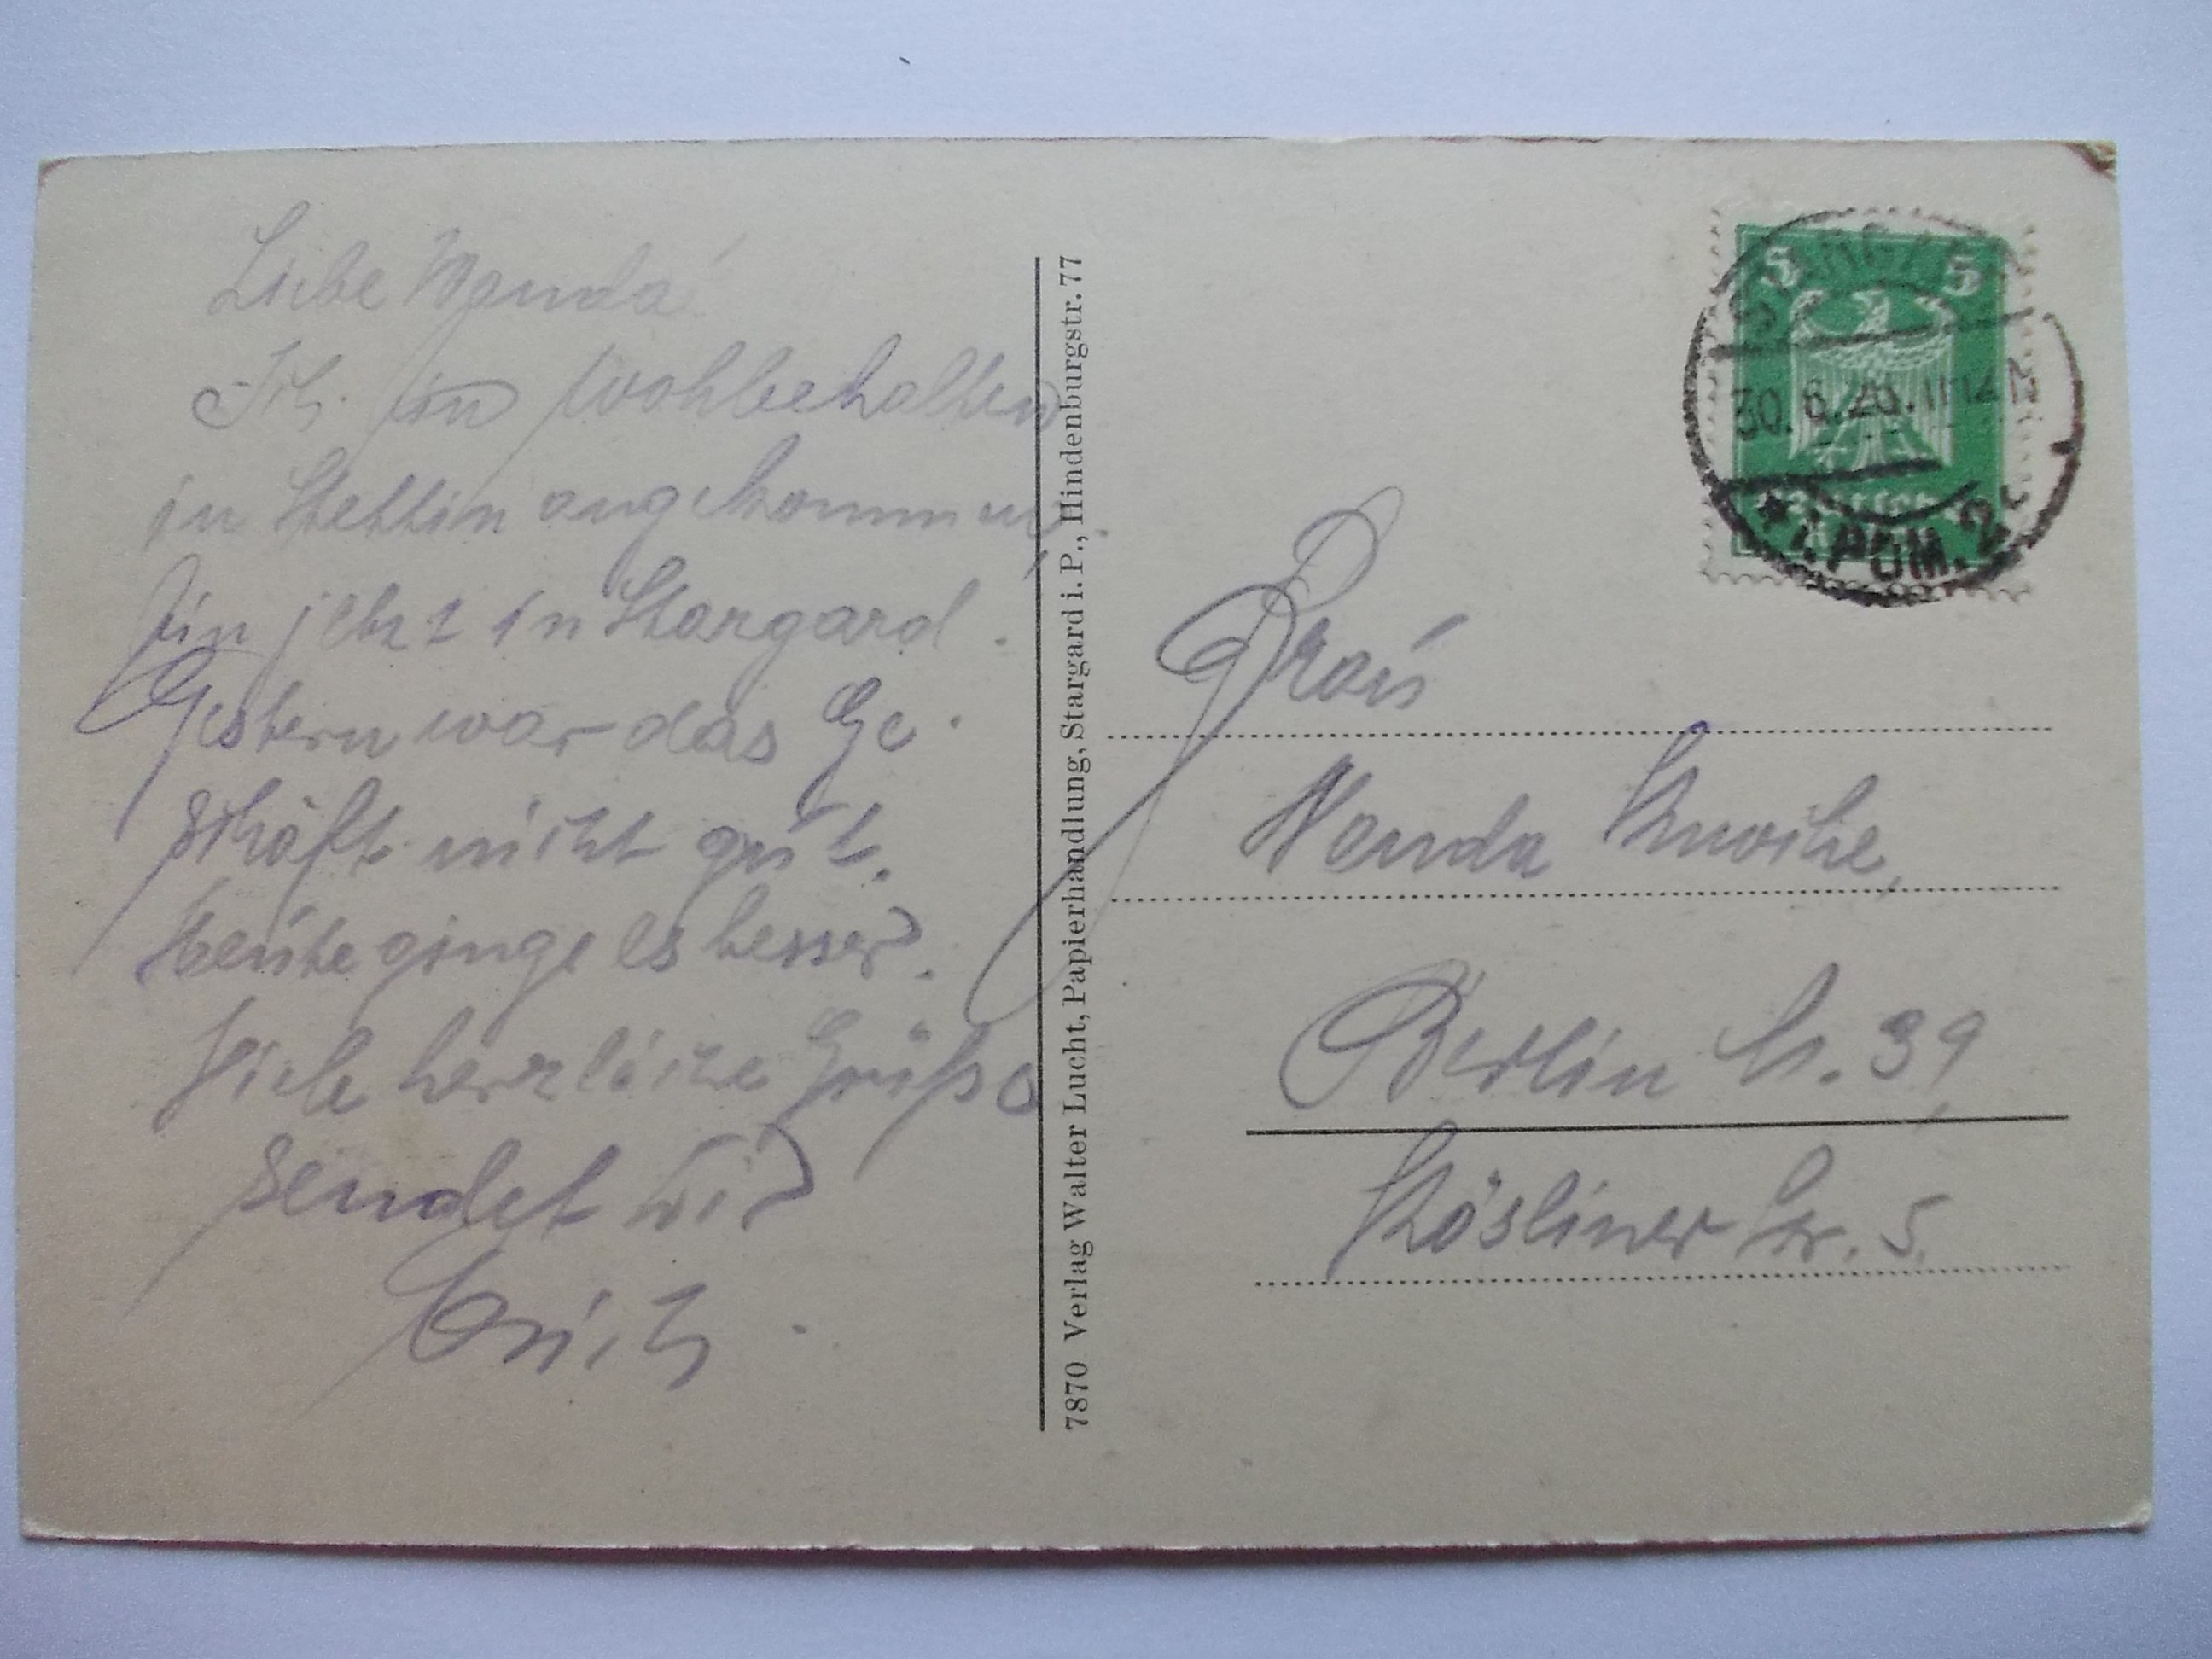 Liebe Wanda!
Ich bin wohlbehalten
in Stettin angekommen.
Bin jetzt in Stargard.
Gestern war das Ge-
schäft nicht gut.
Heute ginge es besser.
Viele herzliche Grüße
sendet Dir
Erich.
7870 Verlag Walter Lucht, Papierhandlung, Stargard i. P., Hindenburgstr. 77
5 5
STARGARD
30.6.26. 11-12 N
* i. POM. 2
Deutsches
Reich
Frau
Wanda Knoche,
Berlin N. 39,
Kösliner Str. 5.